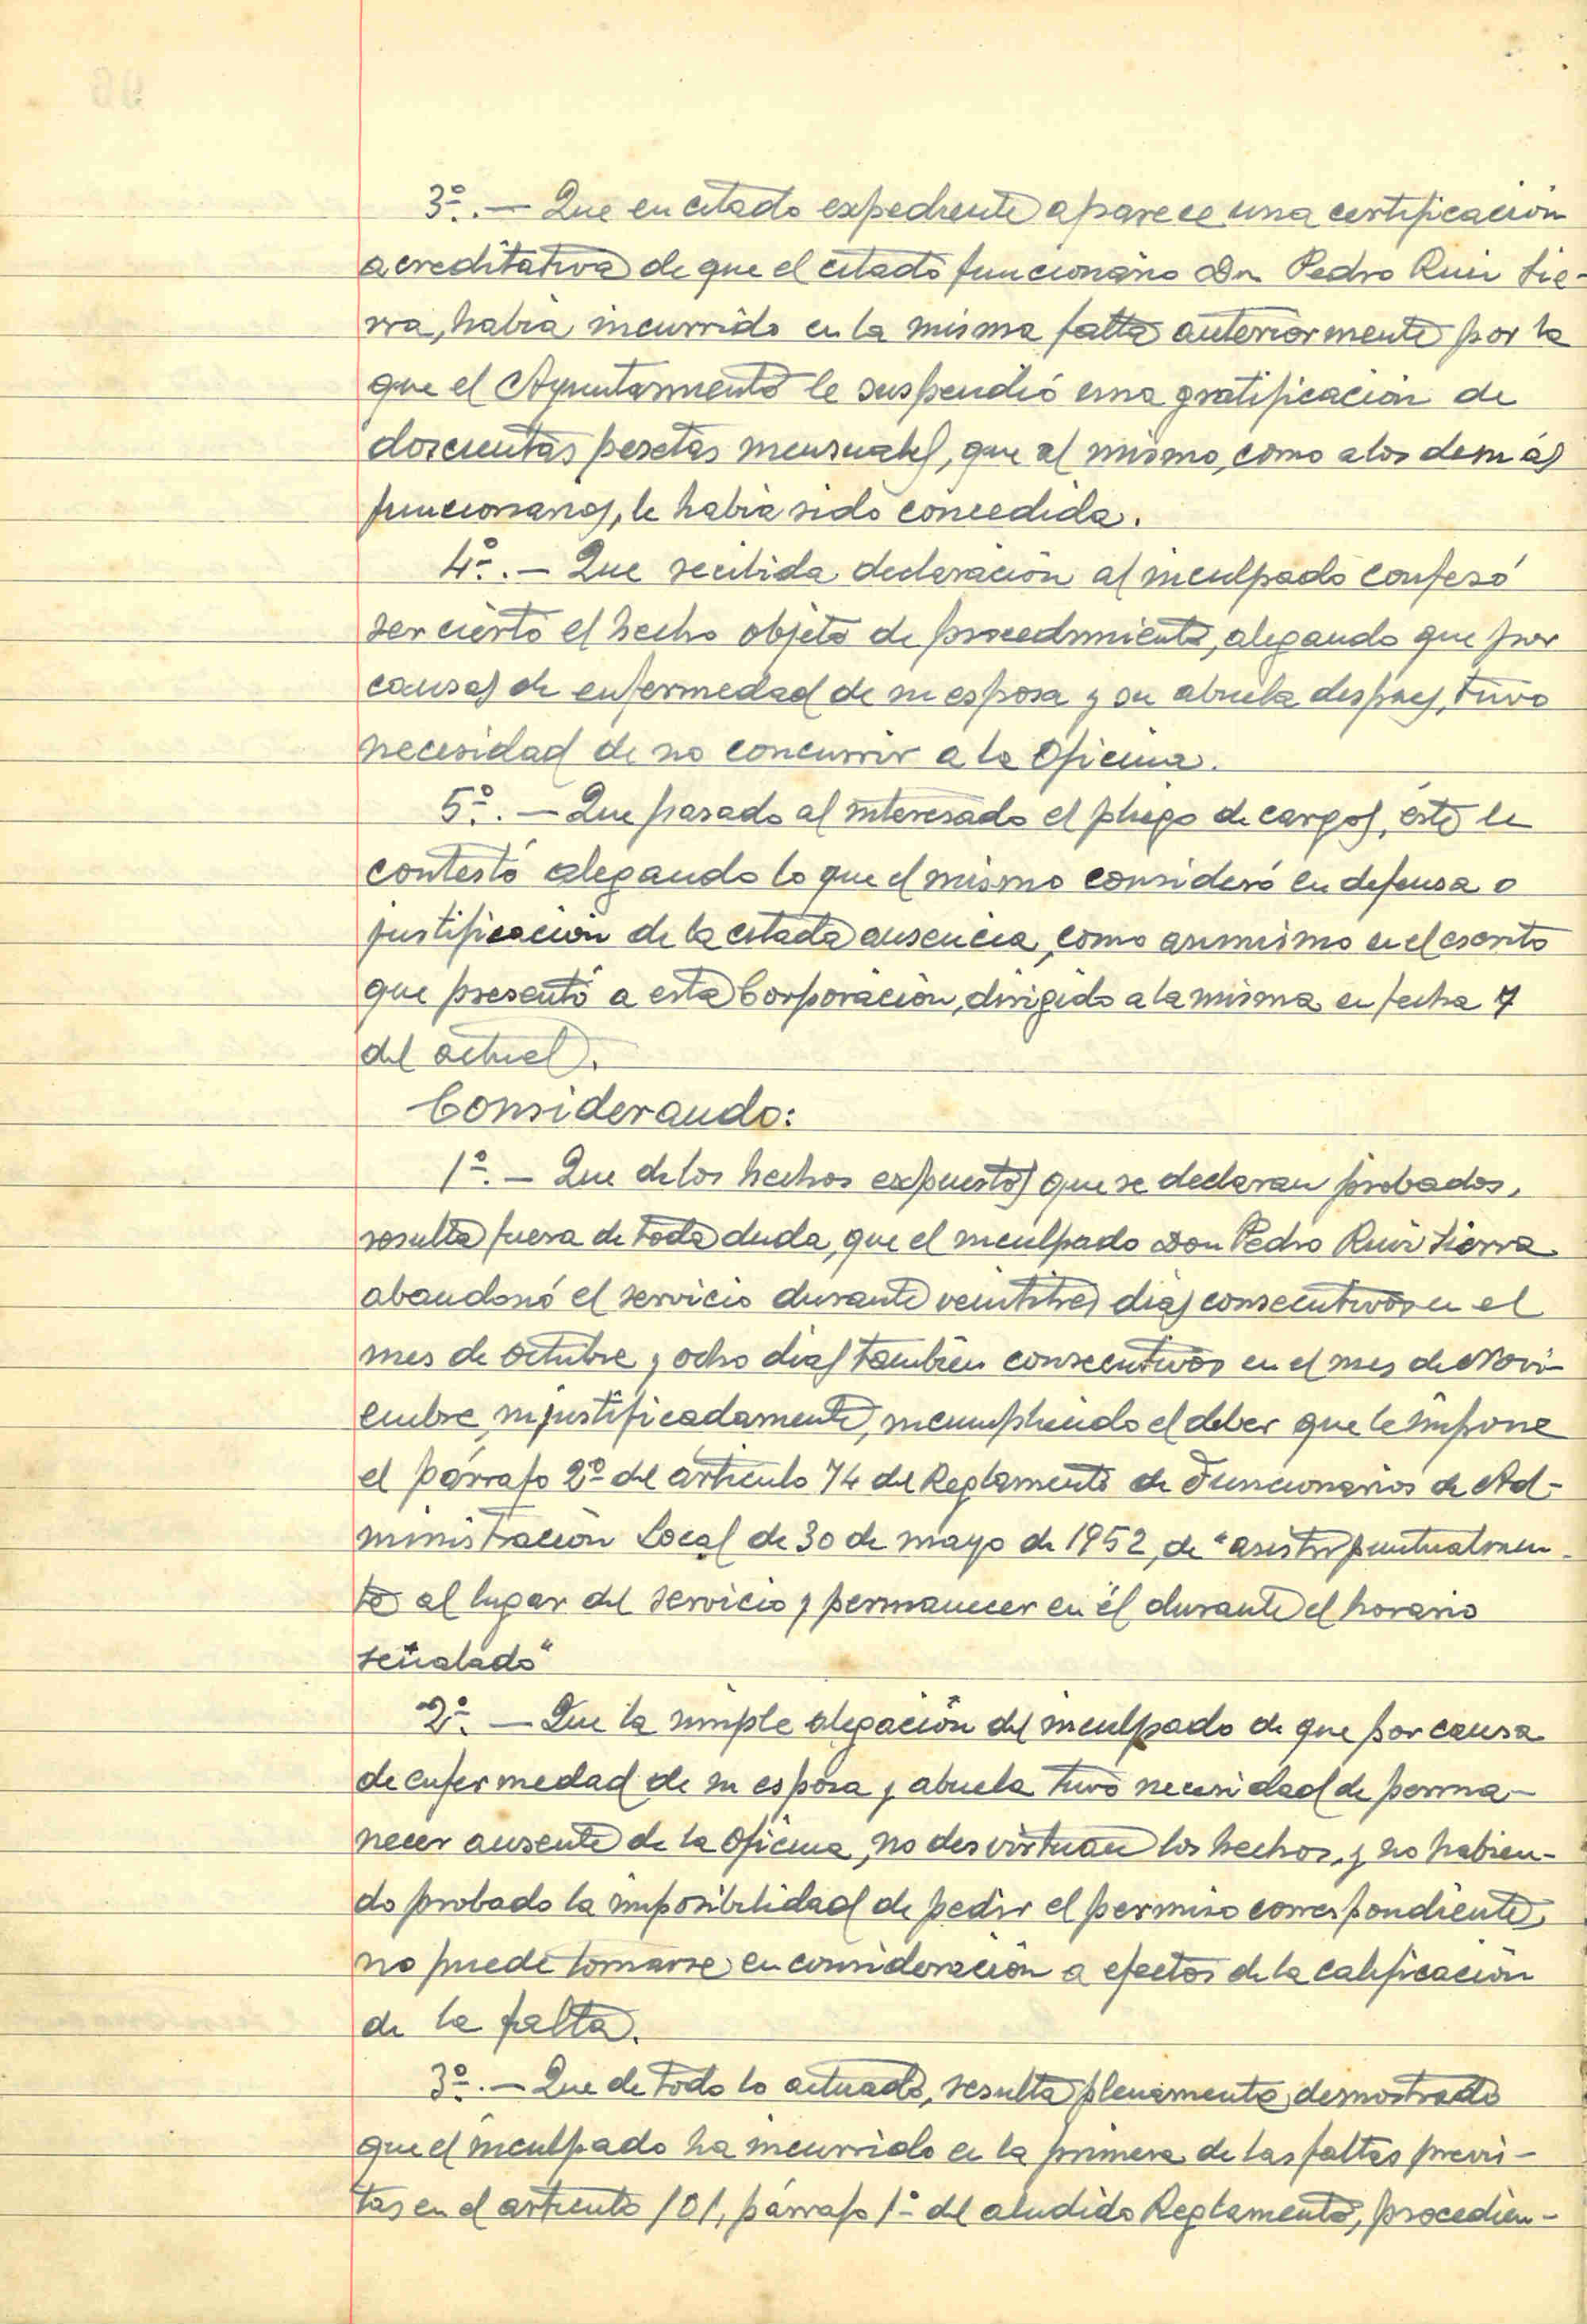 3º.- Que en citado expediente aparece una certificación
acreditativa de que el citado funcionario Don Pedro Ruiz Sie-
rra, habia incurrido en la misma falta anteriormente por la
que el Ayuntamiento le suspendió una gratificación de
doscientas pesetas mensuales, que al mismo, como a los demás
funcionarios, le habia sido concedida.
4º.- Que recibida declaración al inculpado confesó
ser cierto el hecho objeto de procedimiento, alegando que por
causas de enfermedad de su esposa y su abuela despues, tuvo
necesidad de no concurrir a la Oficina.
5º.- Que pasado al interesado el pliego de cargos, éste le
contestó alegando lo que el mismo consideró en defensa o
justificación de la citada ausencia, como asimismo en el escrito
que presentó a esta Corporación, dirigido a la misma en fecha 7
del actual.
Considerando:
1º.- Que de los hechos expuestos que se declaran probados,
resulta fuera de toda duda, que el inculpado Don Pedro Ruiz Sierra
abandonó el servicio durante veintitres dias consecutivos en el
mes de Octubre y ocho dias tambien consecutivos en el mes de Novi-
embre, injustificadamente, incumpliendo el deber que le impone
el párrafo 2º del artículo 74 del Reglamento de Funcionarios de Ad-
ministración Local de 30 de mayo de 1952, de "asistir puntualmen-
te al lugar del servicio y permanecer en él durante el horario
señalado"
2º.- Que la simple alegación del inculpado de que por causa
de enfermedad de su esposa y abuela tuvo necesidad de perma-
necer ausente de la Oficina, no desvirtuan los hechos, y no habien-
do probado la imposibilidad de pedir el permiso correspondiente,
no puede tomarse en consideración a efectos de la calificación
de la falta.
3º.- Que de todo lo actuado, resulta plenamente demostrado
que el inculpado ha incurrido en la primera de las faltas previs-
tas en el artículo 101, párrafo 1º del aludido Reglamento, procedien-